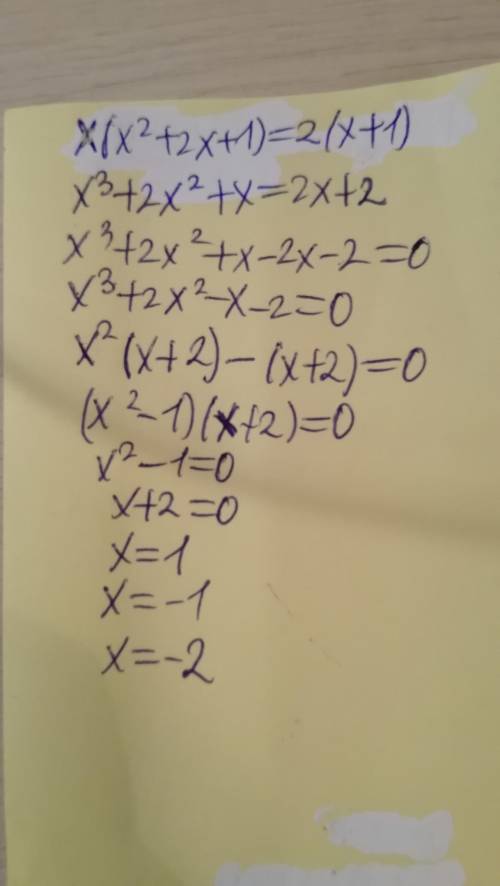 x(x²+2x+1)=2(x+1)
x³+2x²+x=2x+2
x³+2x²+x-2x-2=0
x³+2x²-x-2=0
x²(x+2)-(x+2)=0
(x²-1)(x+2)=0
x²-1=0
x+2=0
x=1
x=-1
x=-2